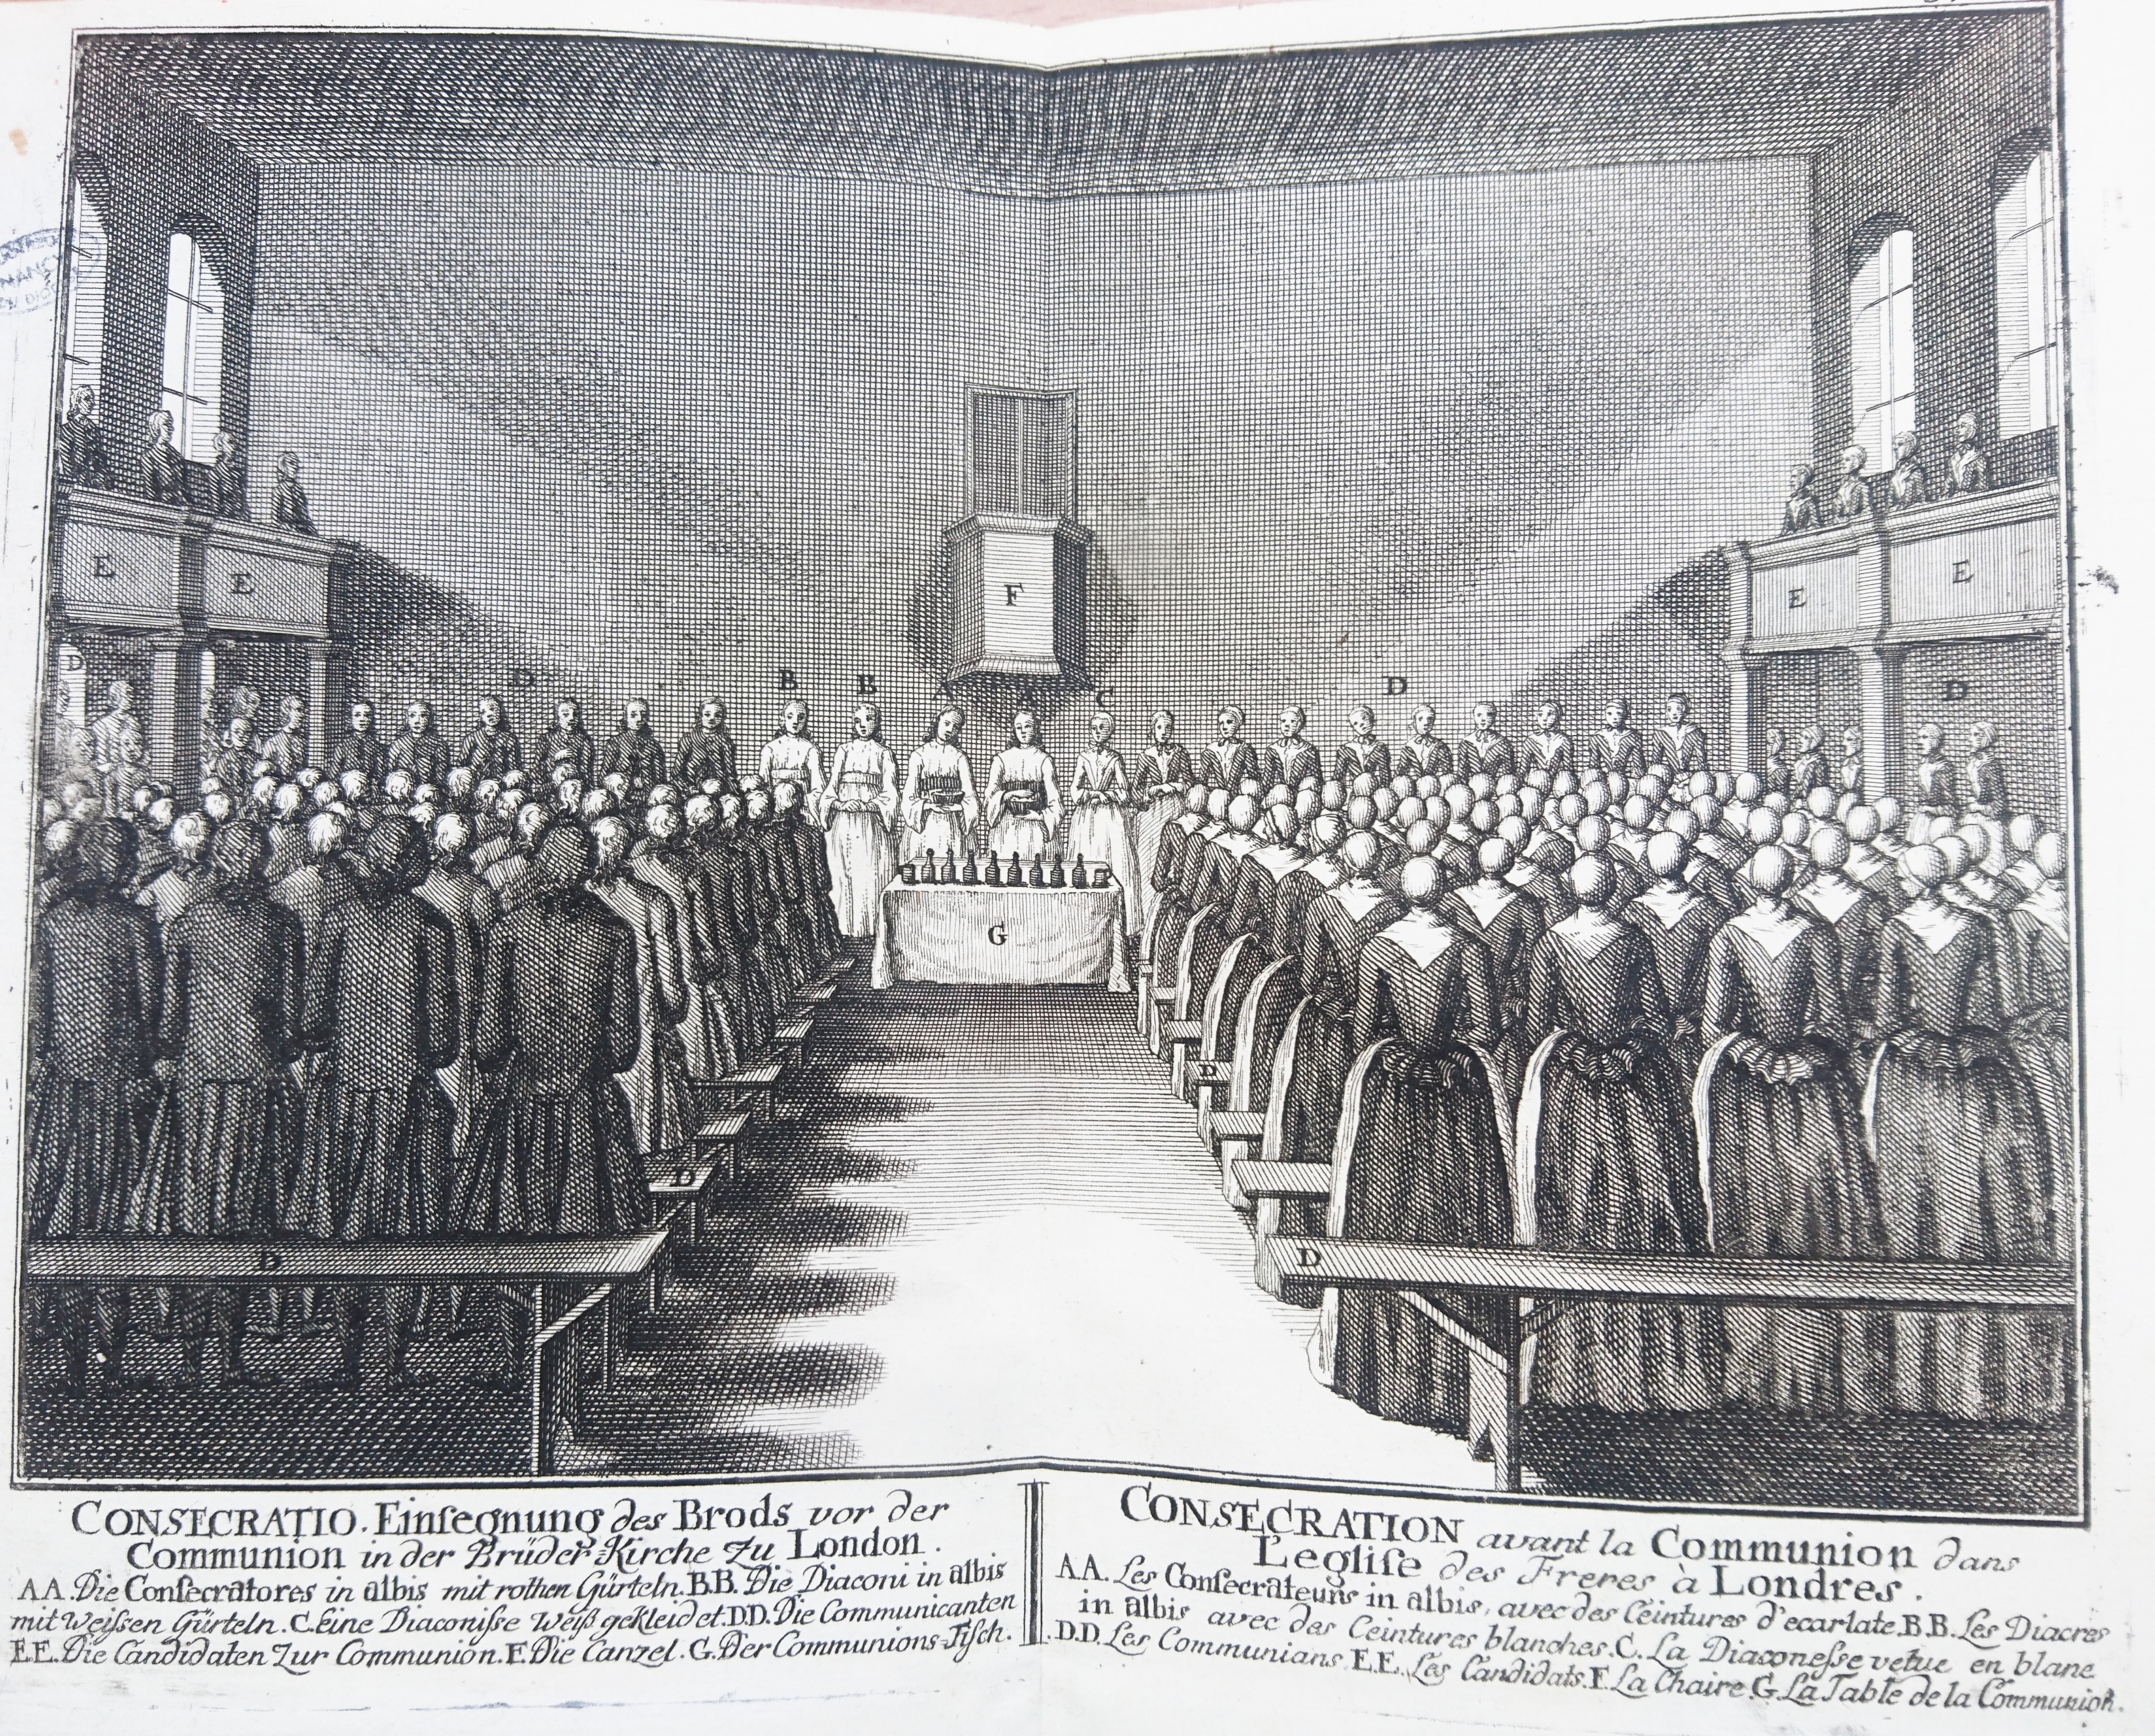 E
E
E
E
F
D
D
B
B
A
A
C
D
D
G
D
D
D
D
CONSECRATIO. Einſegnung des Brods vor der
Communion in der Brüder-Kirche zu London.
AA. Die Conſecratores in albis mit rothen Gürteln. B.B. Die Diaconi in albis
mit Weiſsen Gürteln. C. Eine Diaconiſse Weiß gekleidet. D.D. Die Communicanten
E.E. Die Candidaten Zur Communion. F. Die Canzel. G. Der Communions-Tiſch.
CONSECRATION avant la Communion dans
L'egliſe des Freres à Londres.
A.A. Les Conſecrateurs in albis, avec des Ceintures d'ecarlate. B.B. Les Diacres
in albis avec des Ceintures blanches. C. La Diaconeſse vetue en blanc
D.D. Les Communians. E.E. Les Candidats. F. La Chaire. G. La Table de la Communion.